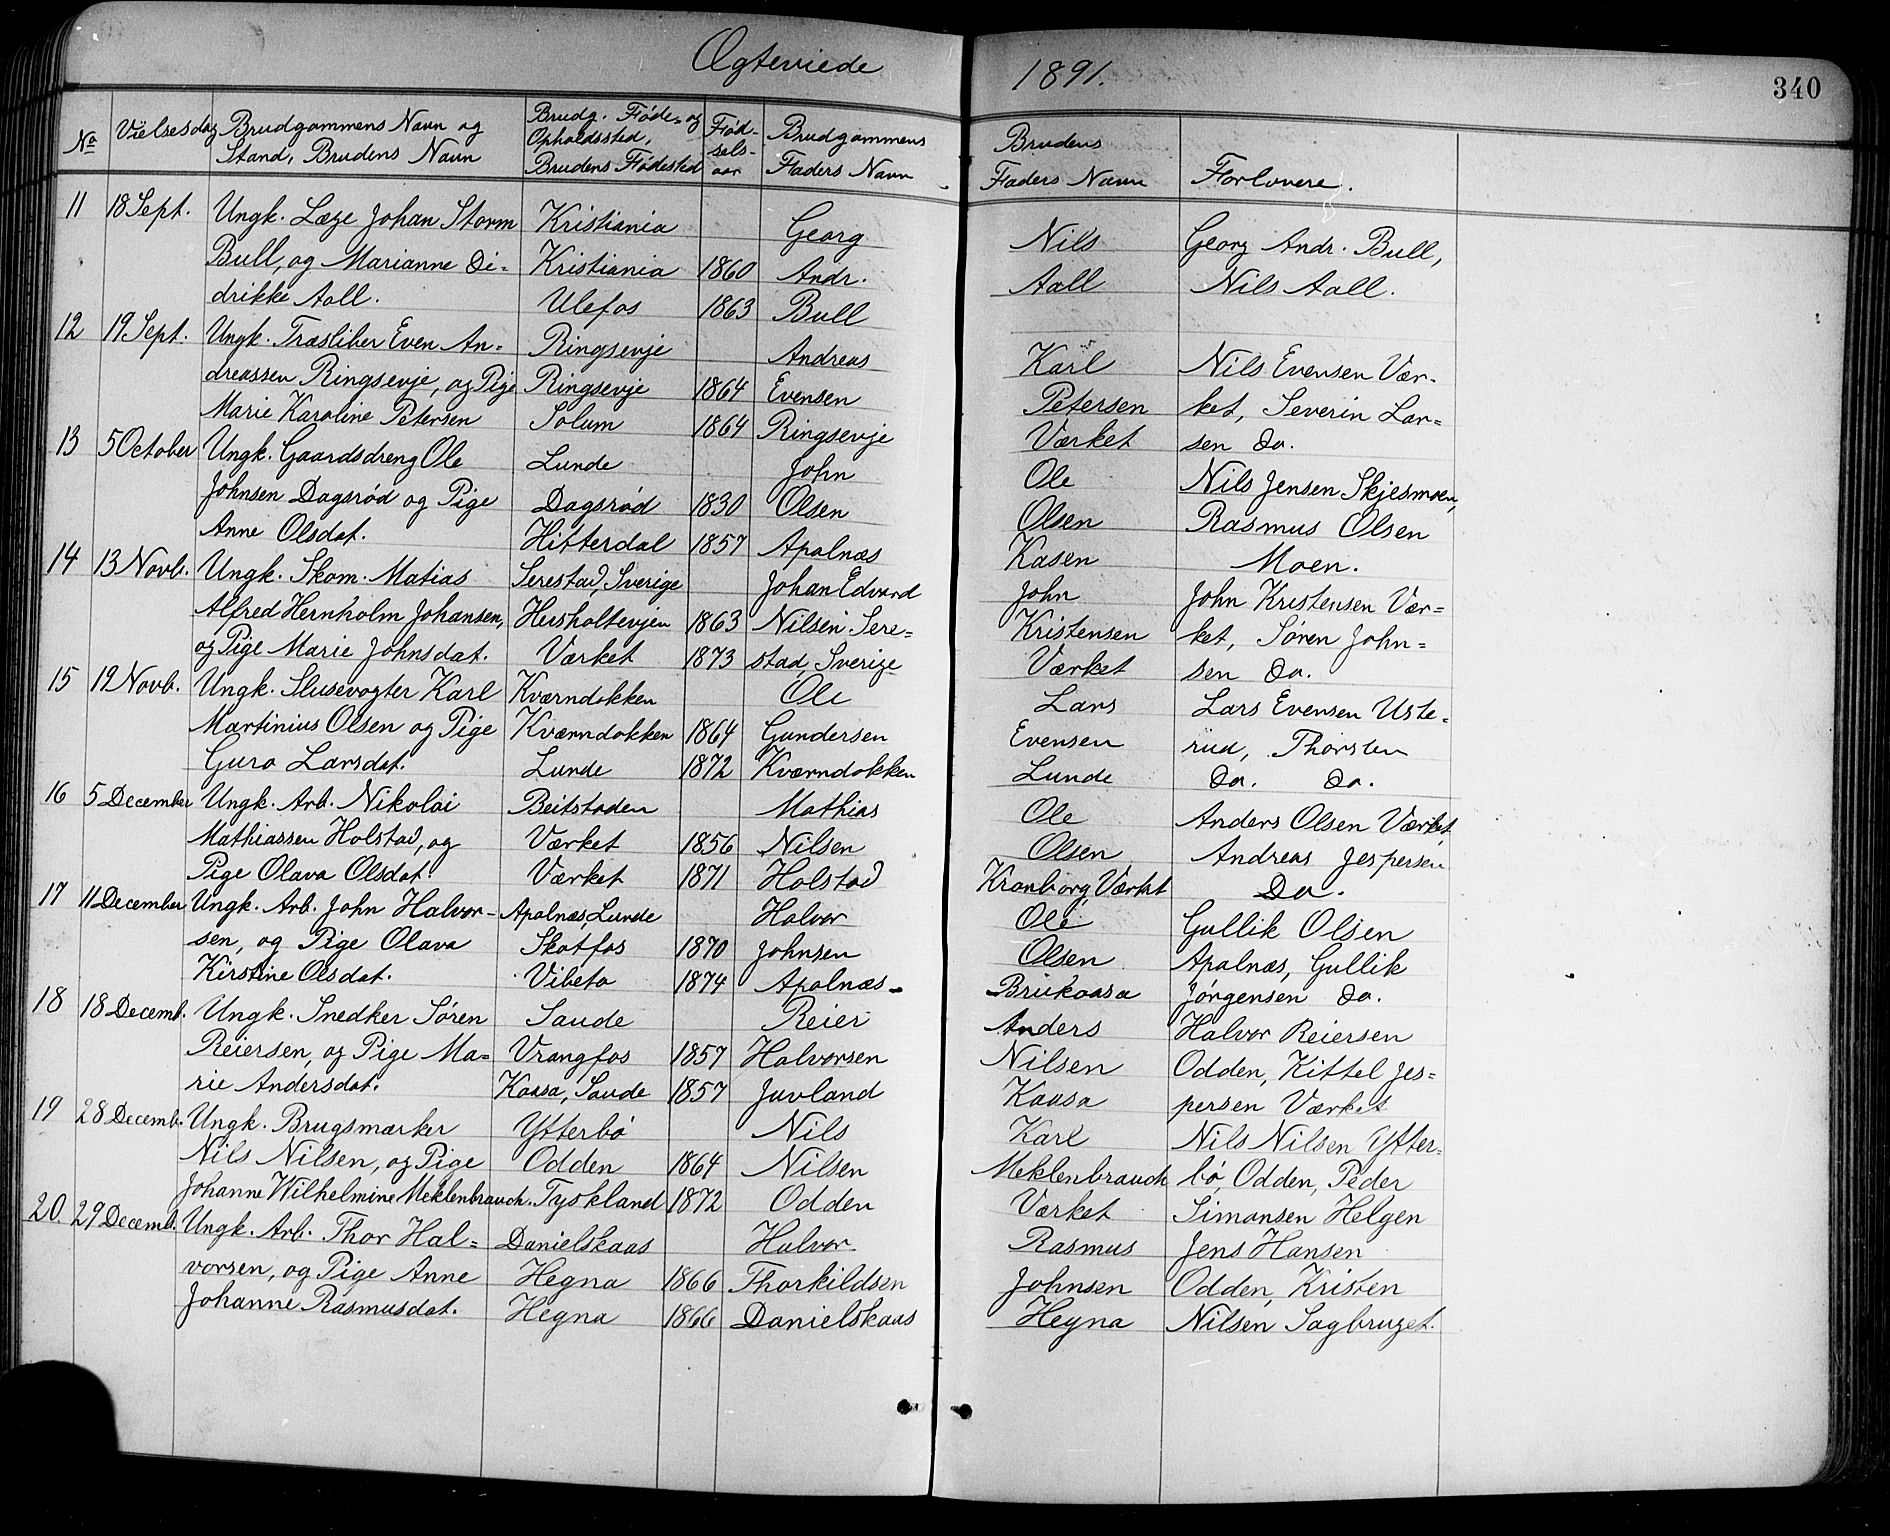 Ægteviede
1891.
340
No
Vielsesdag
Brudgommens Navn og
Stand, Brudens Navn
Brudg. Føde- og
Opholdssted,
Brudens Fødested
Fød-
sels-
aar
Brudgommens
Faders Navn
Brudens
Faders Navn
Forlovere.
11 18 Sept. Ungk. Læge Johan Storm Kristiania Georg Nils Georg Andr. Bull,
Bull, og Marianne Di- Kristiania 1860 Andr. Aall Nils Aall.
drikke Aall. Ulefos 1863 Bull
12 19 Sept. Ungk. Træsliber Even An- Ringsevje Andreas Karl Nils Evensen Vær-
dreassen Ringsevje, og Pige Ringsevje 1864 Evensen Petersen ket, Severin Lar-
Marie Karoline Petersen Solum 1864 Ringsevje Værket sen Do.
13 5 October Ungk. Gaardsdreng Ole Lunde John Ole Nils Jensen Skjesmoen,
Johnsen Dagsrød og Pige Dagsrød 1830 Olsen Olsen Rasmus Olsen
Anne Olsdat. Hitterdal 1857 Apalnæs Kasen Moen.
14 13 Novb. Ungk. Skom. Matias Serestad, Sverige Johan Edvard John John Kristensen Vær-
Alfred Hernholm Johansen, Heisholtevjen 1863 Nilsen Sere- Kristensen ket, Søren John-
og Pige Marie Johnsdat. Værket 1873 stad, Sverige Værket sen Do.
15 19 Novb. Ungk. Slusevogter Karl Kværndokken Ole Lars Lars Evensen Uste-
Martinius Olsen og Pige Kværndokken 1864 Gundersen Evensen rud, Thorsten
Guro Larsdat. Lunde 1872 Kværndokken Lunde Do. Do.
16 5 December Ungk. Arb. Nikolai Beitstaden Mathias Ole Anders Olsen Værket,
Mathiassen Holstad, og Værket 1856 Nilsen Olsen Andreas Jespersen
Pige Olava Olsdat. Værket 1871 Holstad Kronborg, Værket Do.
17 11 December Ungk. Arb. John Halvor- Apalnæs, Lunde Halvor Ole Gullik Olsen
sen, og Pige Olava Skotfos 1870 Johnsen Olsen Apalnæs, Gullik
Kirstine Olsdat. Vibeto 1874 Apalnæs Brukaasa Jørgensen Do.
18 18 Decemb. Ungk. Snedker Søren Saude Reier Anders Halvor Reiersen
Reiersen, og Pige Ma- Vrangfos 1857 Halvorsen Nilsen Odden, Kittel Jes-
rie Andersdat. Kaasa, Saude 1857 Juvland Kaasa persen Værket
19 28 Decemb. Ungk. Brugsmærker Ytterbø Nils Karl Nils Nilsen Ytter-
Nils Nilsen, og Pige Odden 1864 Nilsen Meklenbrauch bø, Odden, Peder
Johanne Wilhelmine Meklenbrauch. Tyskland 1872 Odden Værket Simonsen Helgen
20. 29 Decemb. Ungk. Arb. Thor Hal- Danielskaas Halvor Rasmus Jens Hansen
vorsen, og Pige Anne Hegna 1866 Thorkildsen Johnsen Odden, Kristen
Johanne Rasmusdat. Hegna 1866 Danielskaas Hegna Nilsen Sagbruget.